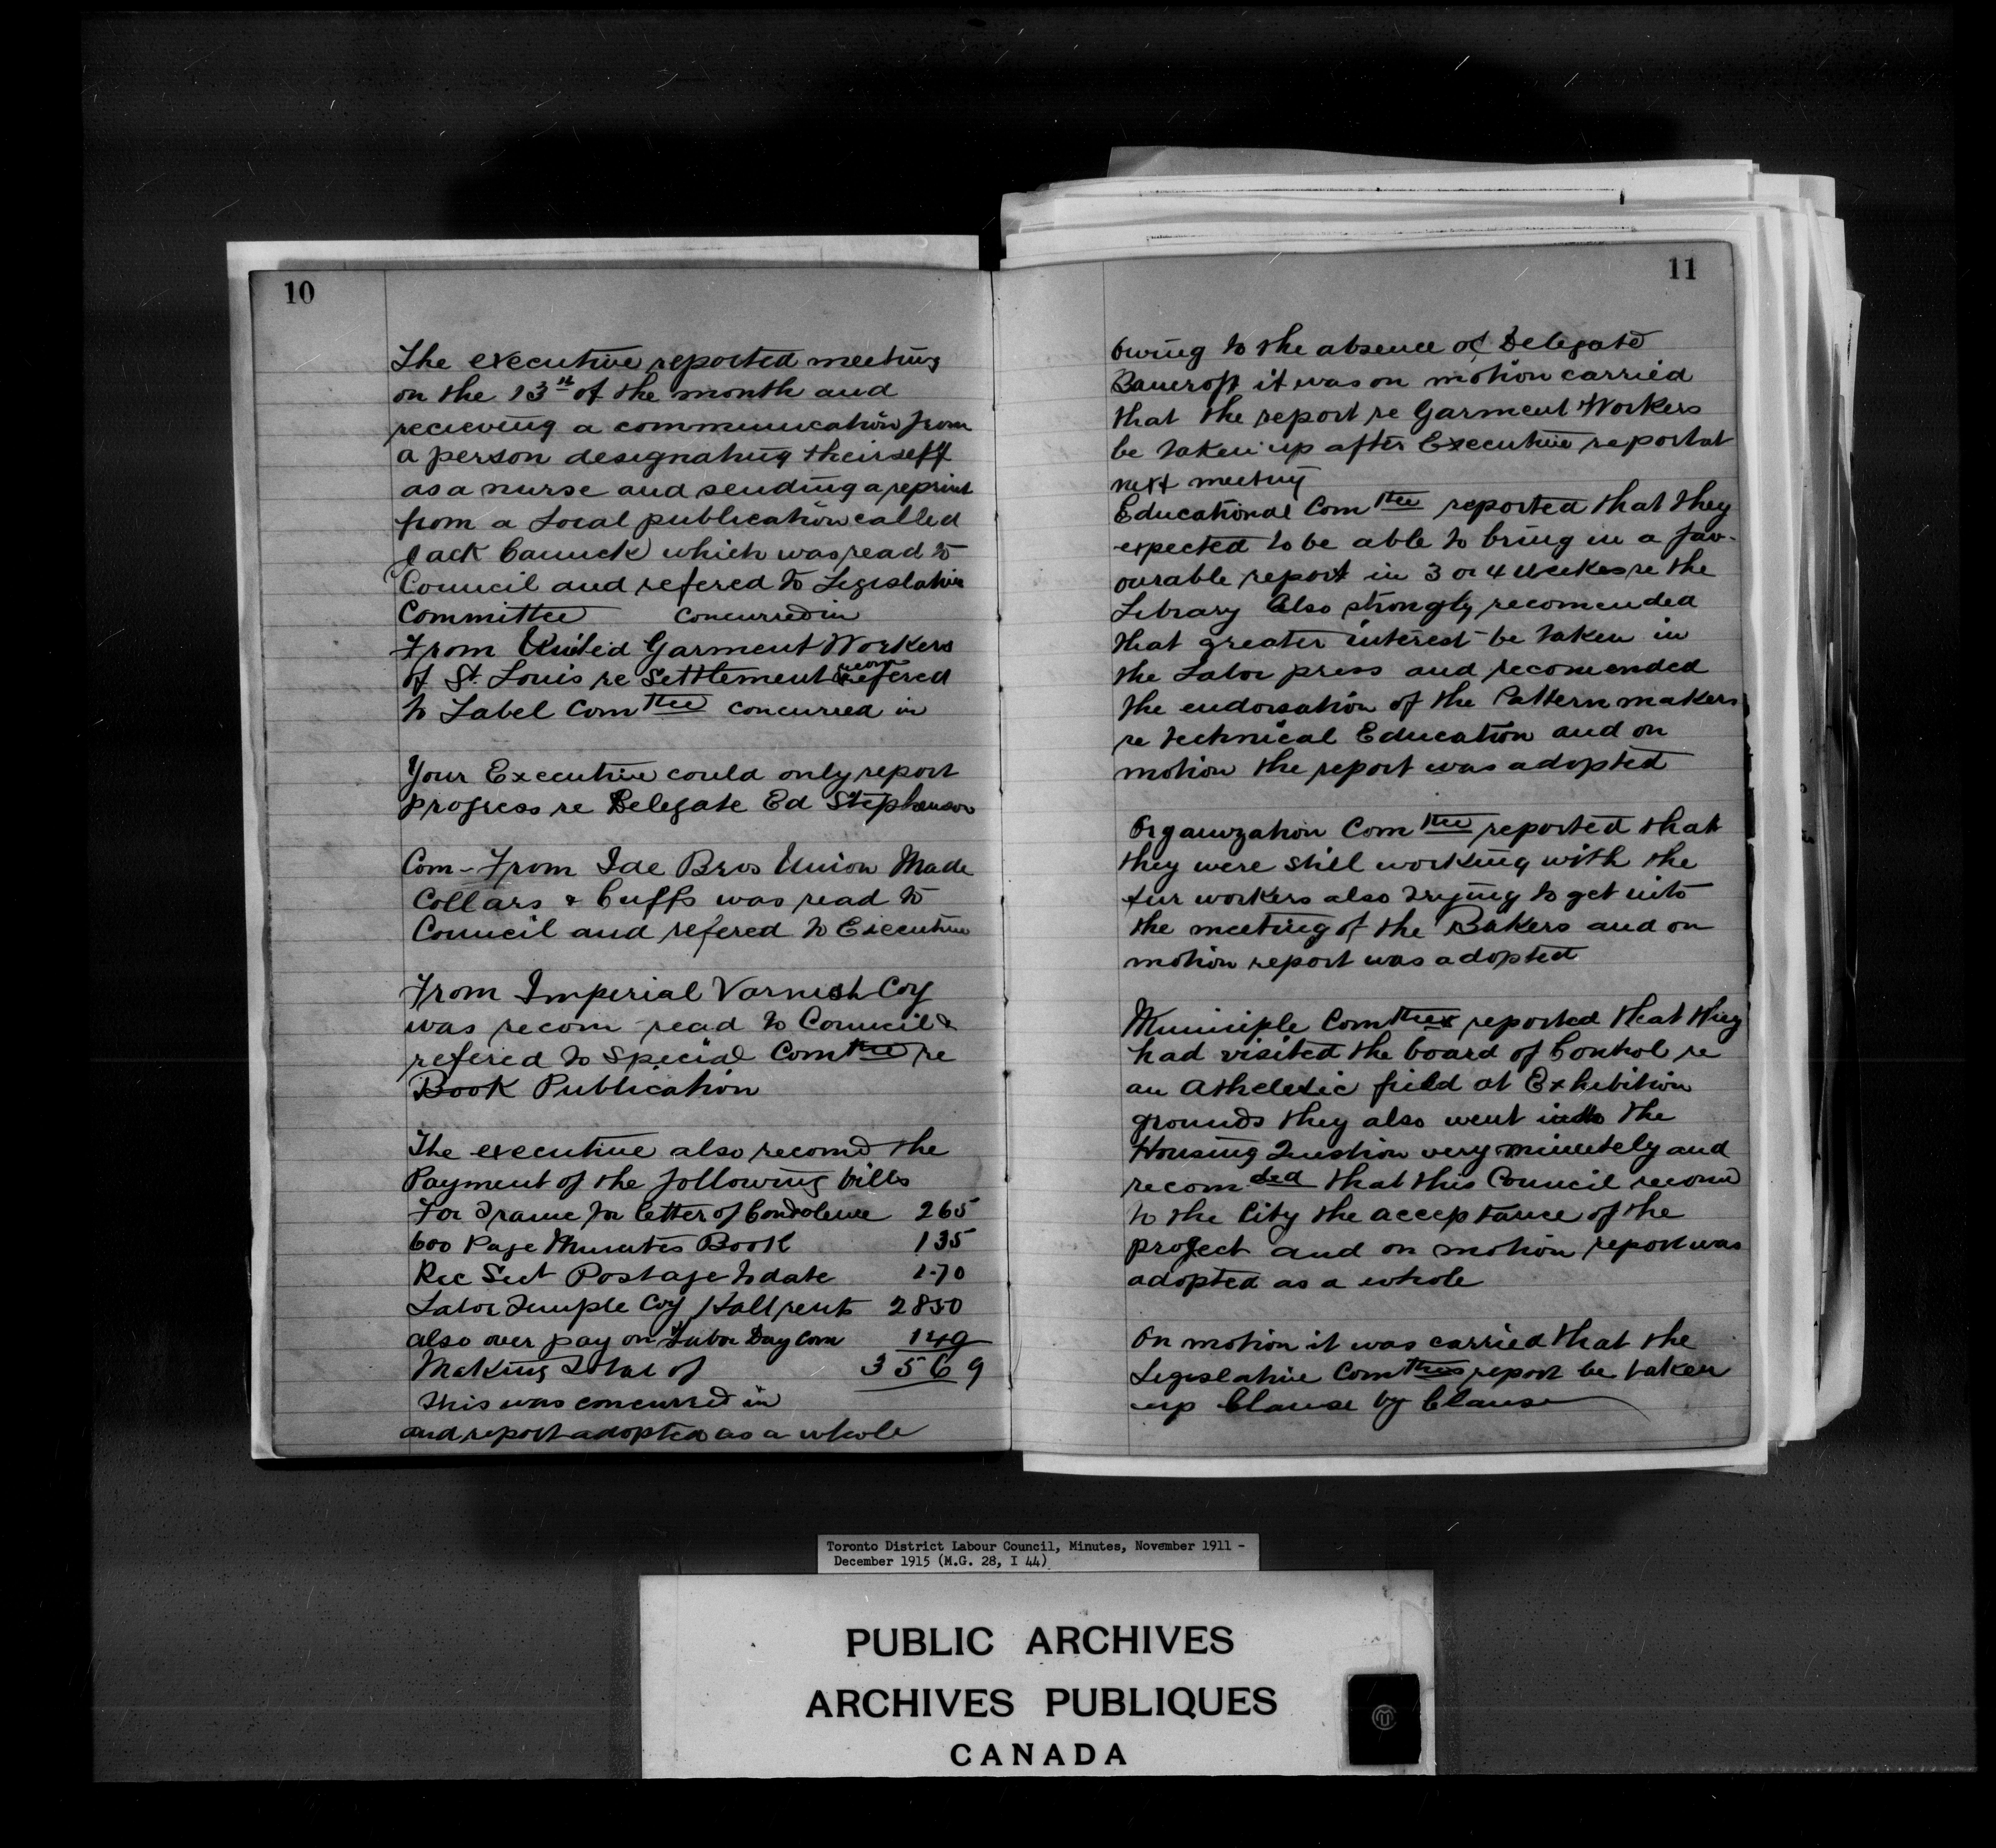 10
The executive reported meeting
on the 13th of the month and
recieving a communication from
a person designating theirself
as a nurse and sending a reprint
from a Local publication called
Jack Canuck which was read to
Council and refered to Legislative
Committee concurred in
From United Garment Workers
of St. Louis re Settlement recom refered
to Label Comttee concurred in
Your Executive could only report
progress re Delegate Ed Stephenson
Com - From Ide Bros Union Made
Collars & Cuffs was read to
Council and refered to Executive
From Imperial Varnish Coy
was recom read to Council &
refered to Special Comttee re
Book Publication
The executive also recomd the
Payment of the following bills
For Frame for letter of Condolence 265
600 Page Minutes Book 135
Rec Sect Postage to date 1.70
Labor Temple Coy Hall rent 2850
also over pay on Labor Day Com 149
Making Total of 3569
This was concurred in
and report adopted as a whole
11
Owing to the absence of Delegate
Bancroft it was on motion carried
that the report re Garment Workers
be taken up after Executive report at
next meeting
Educational Comttee reported that they
expected to be able to bring in a fav-
ourable report in 3 or 4 weekes re the
Library Also strongly recomended
that greater interest be taken in
the Labor press and recomended
the endorsation of the Pattern makers
re technical Education and on
motion the report was adopted
Organization Comttee reported that
they were still working with the
fur workers also trying to get into
the meeting of the Bakers and on
motion report was adopted
Municiple Comttee reported that they
had visited the board of Control re
an Atheletic field at Exhibition
grounds they also went into the
Housing Question very minutely and
recomded that this Council recomd
to the City the acceptance of the
project and on motion report was
adopted as a whole
On motion it was carried that the
Legislative Comttees report be taken
up Clause by Clause
Toronto District Labour Council, Minutes, November 1911 -
December 1915 (M.G. 28, I 44)
PUBLIC ARCHIVES
ARCHIVES PUBLIQUES
CANADA